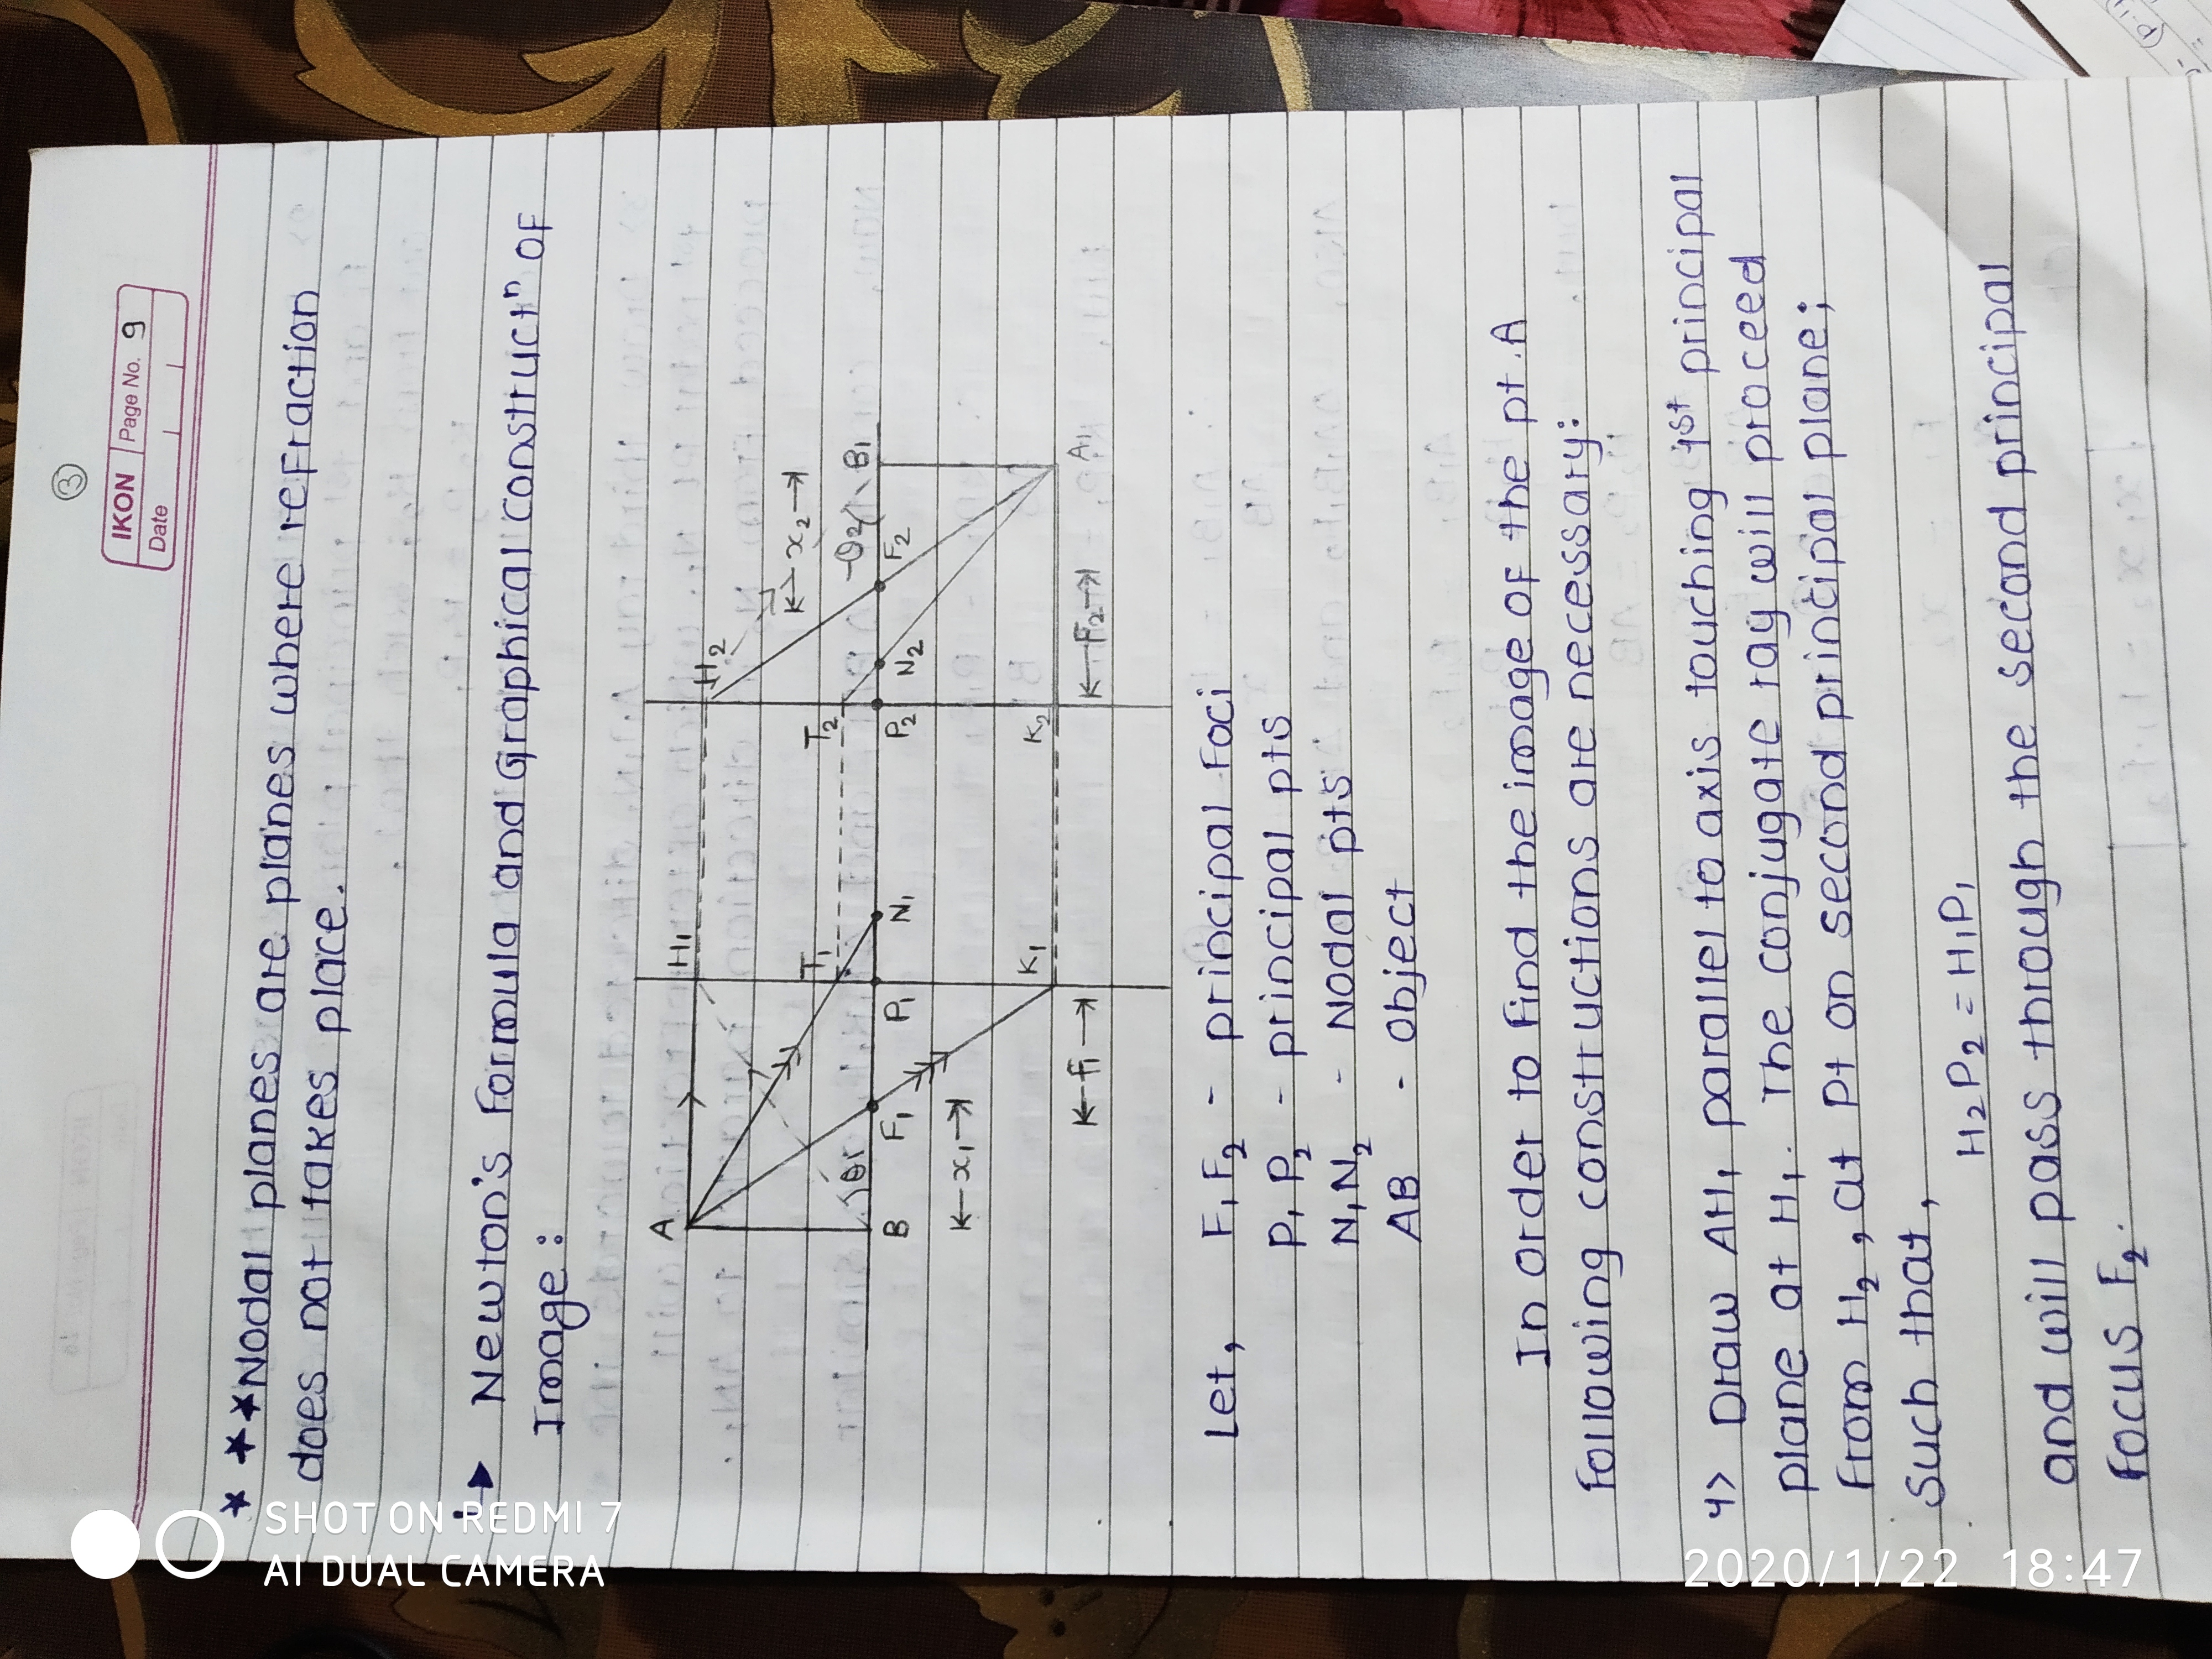 ③
IKON Page No. 9
Date
* ★★Nodal planes are planes where refraction
does not takes place.
Newton's Formula and Graphical constructⁿ of
Image :
A H₁ H₂
K← x₂ →
T₁ T₂ θ₂ B₁
B θ₁ F₁ P₁ N₁ P₂ N₂ F₂
K← x₁ →
K₁ K₂ A₁
K← F₁ → K← F₂ →
Let, F₁F₂ - principal Foci
P₁P₂ - principal pts
N₁N₂ - Nodal pts
AB - object
In order to find the image of the pt. A
following constructions are necessary:
1> Draw AH₁ parallel to axis touching 1st principal
plane at H₁. The conjugate ray will proceed
from H₂, at Pt on second principal plane;
such that,
H₂P₂ = H₁P₁
and will pass through the second principal
focus F₂.
SHOT ON REDMI 7
AI DUAL CAMERA
2020/1/22 18:47